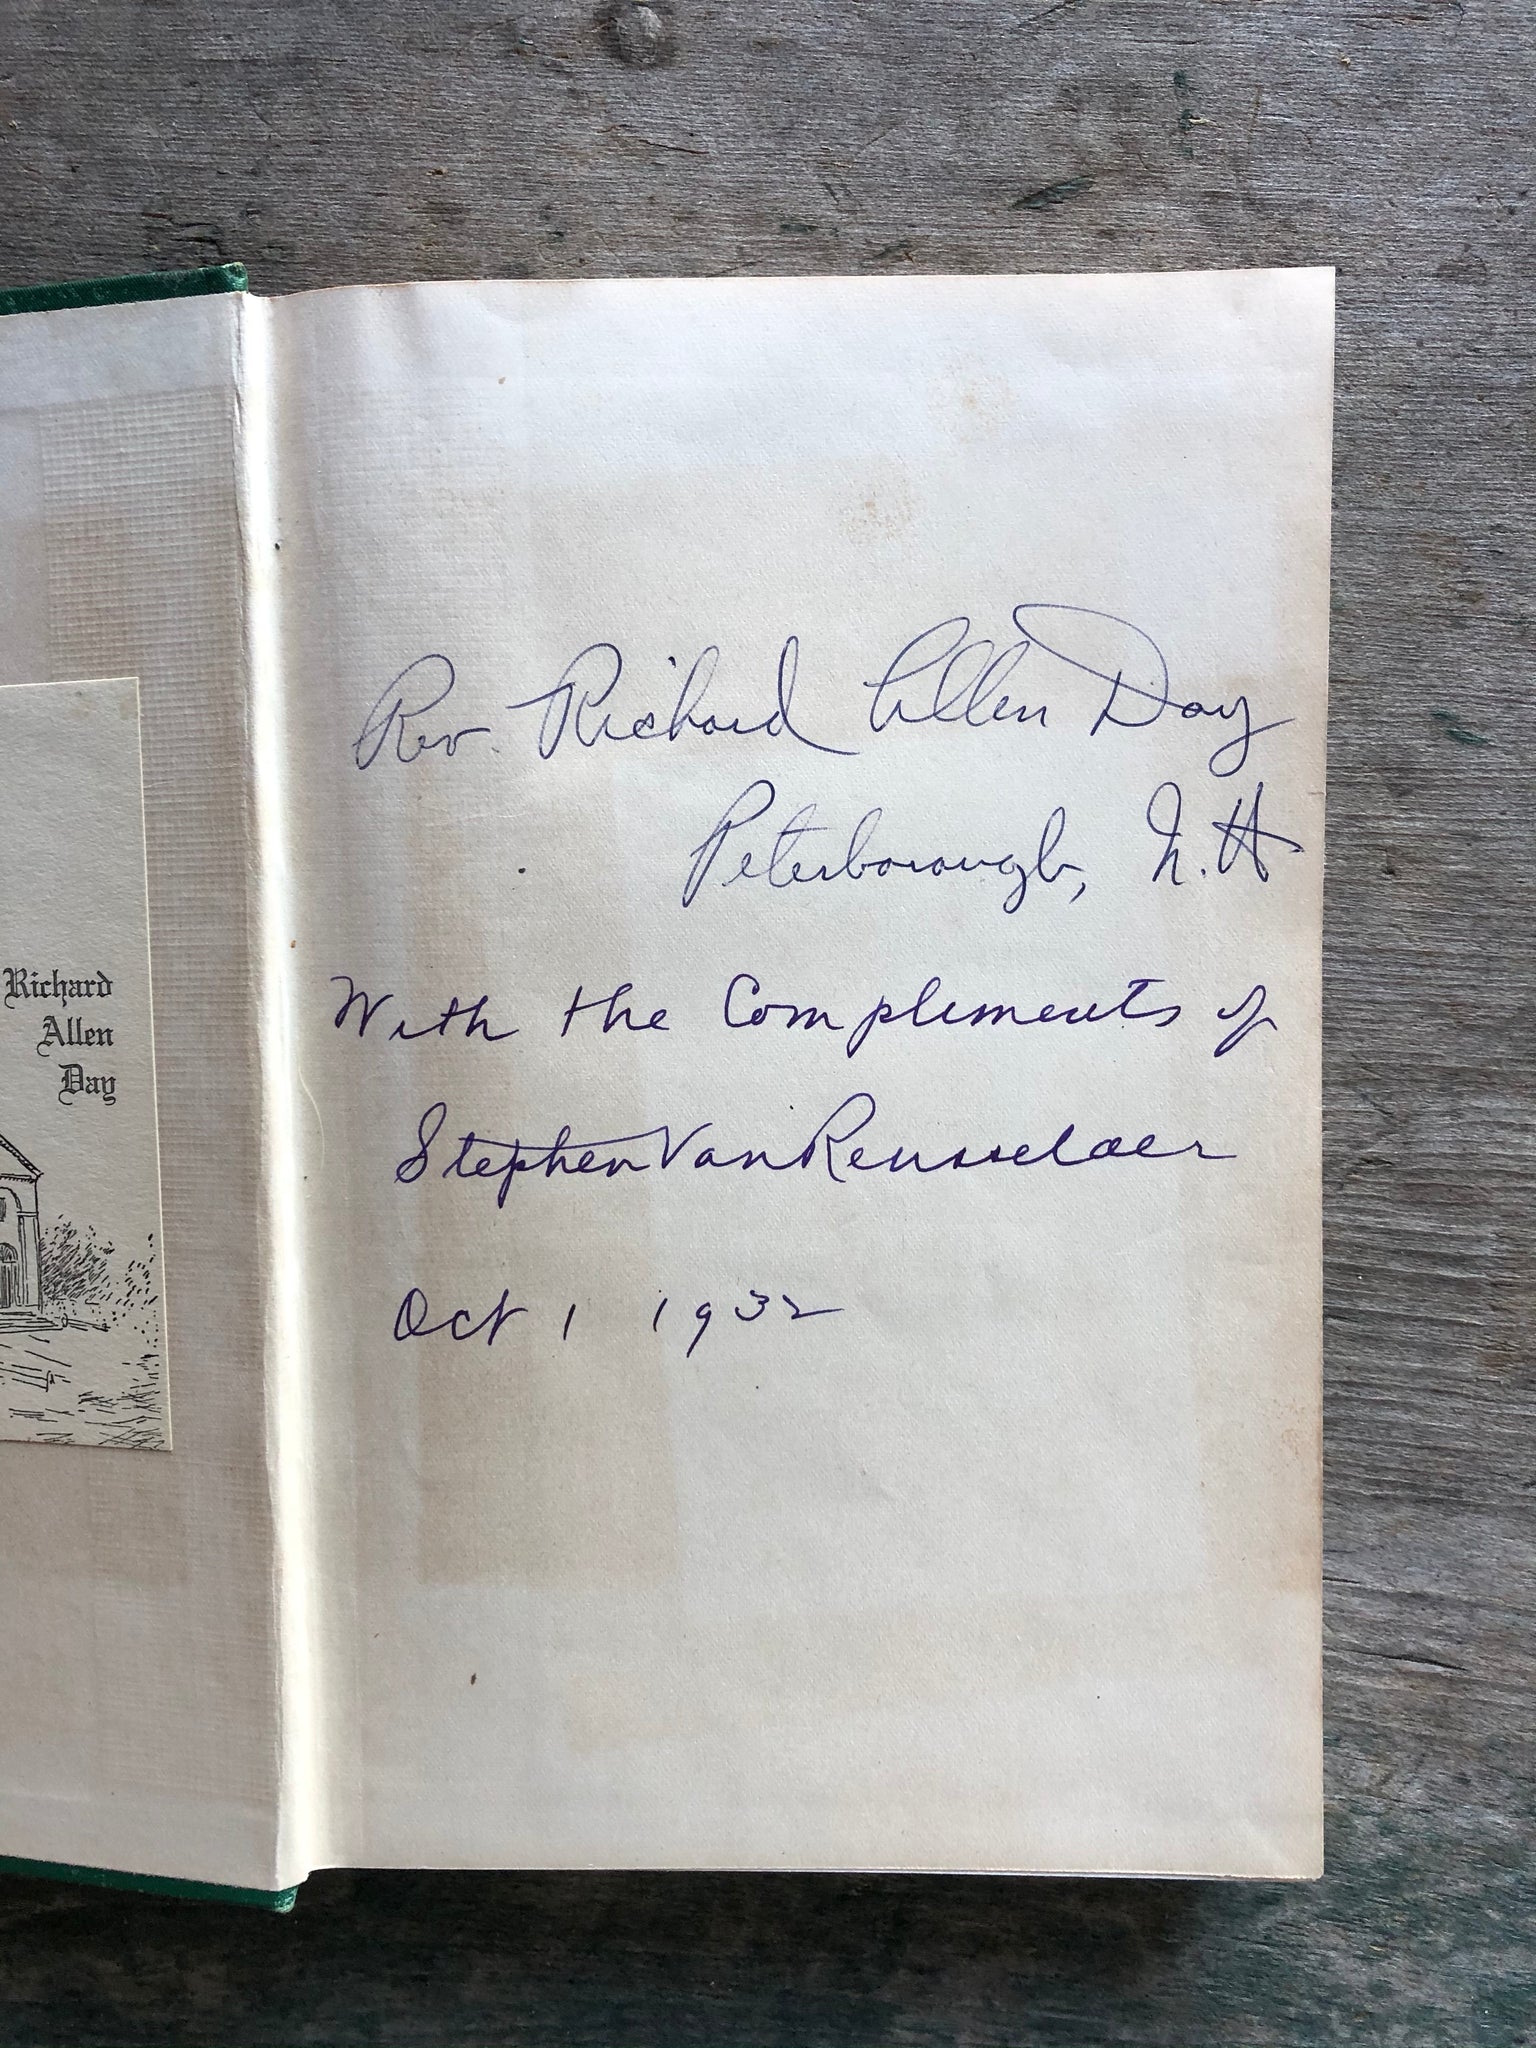 Richard
Allen
Day
Rev. Richard Allen Day
Peterborough, N.H
With the Compliments of
Stephen Van Rensselaer
Oct 1 1932